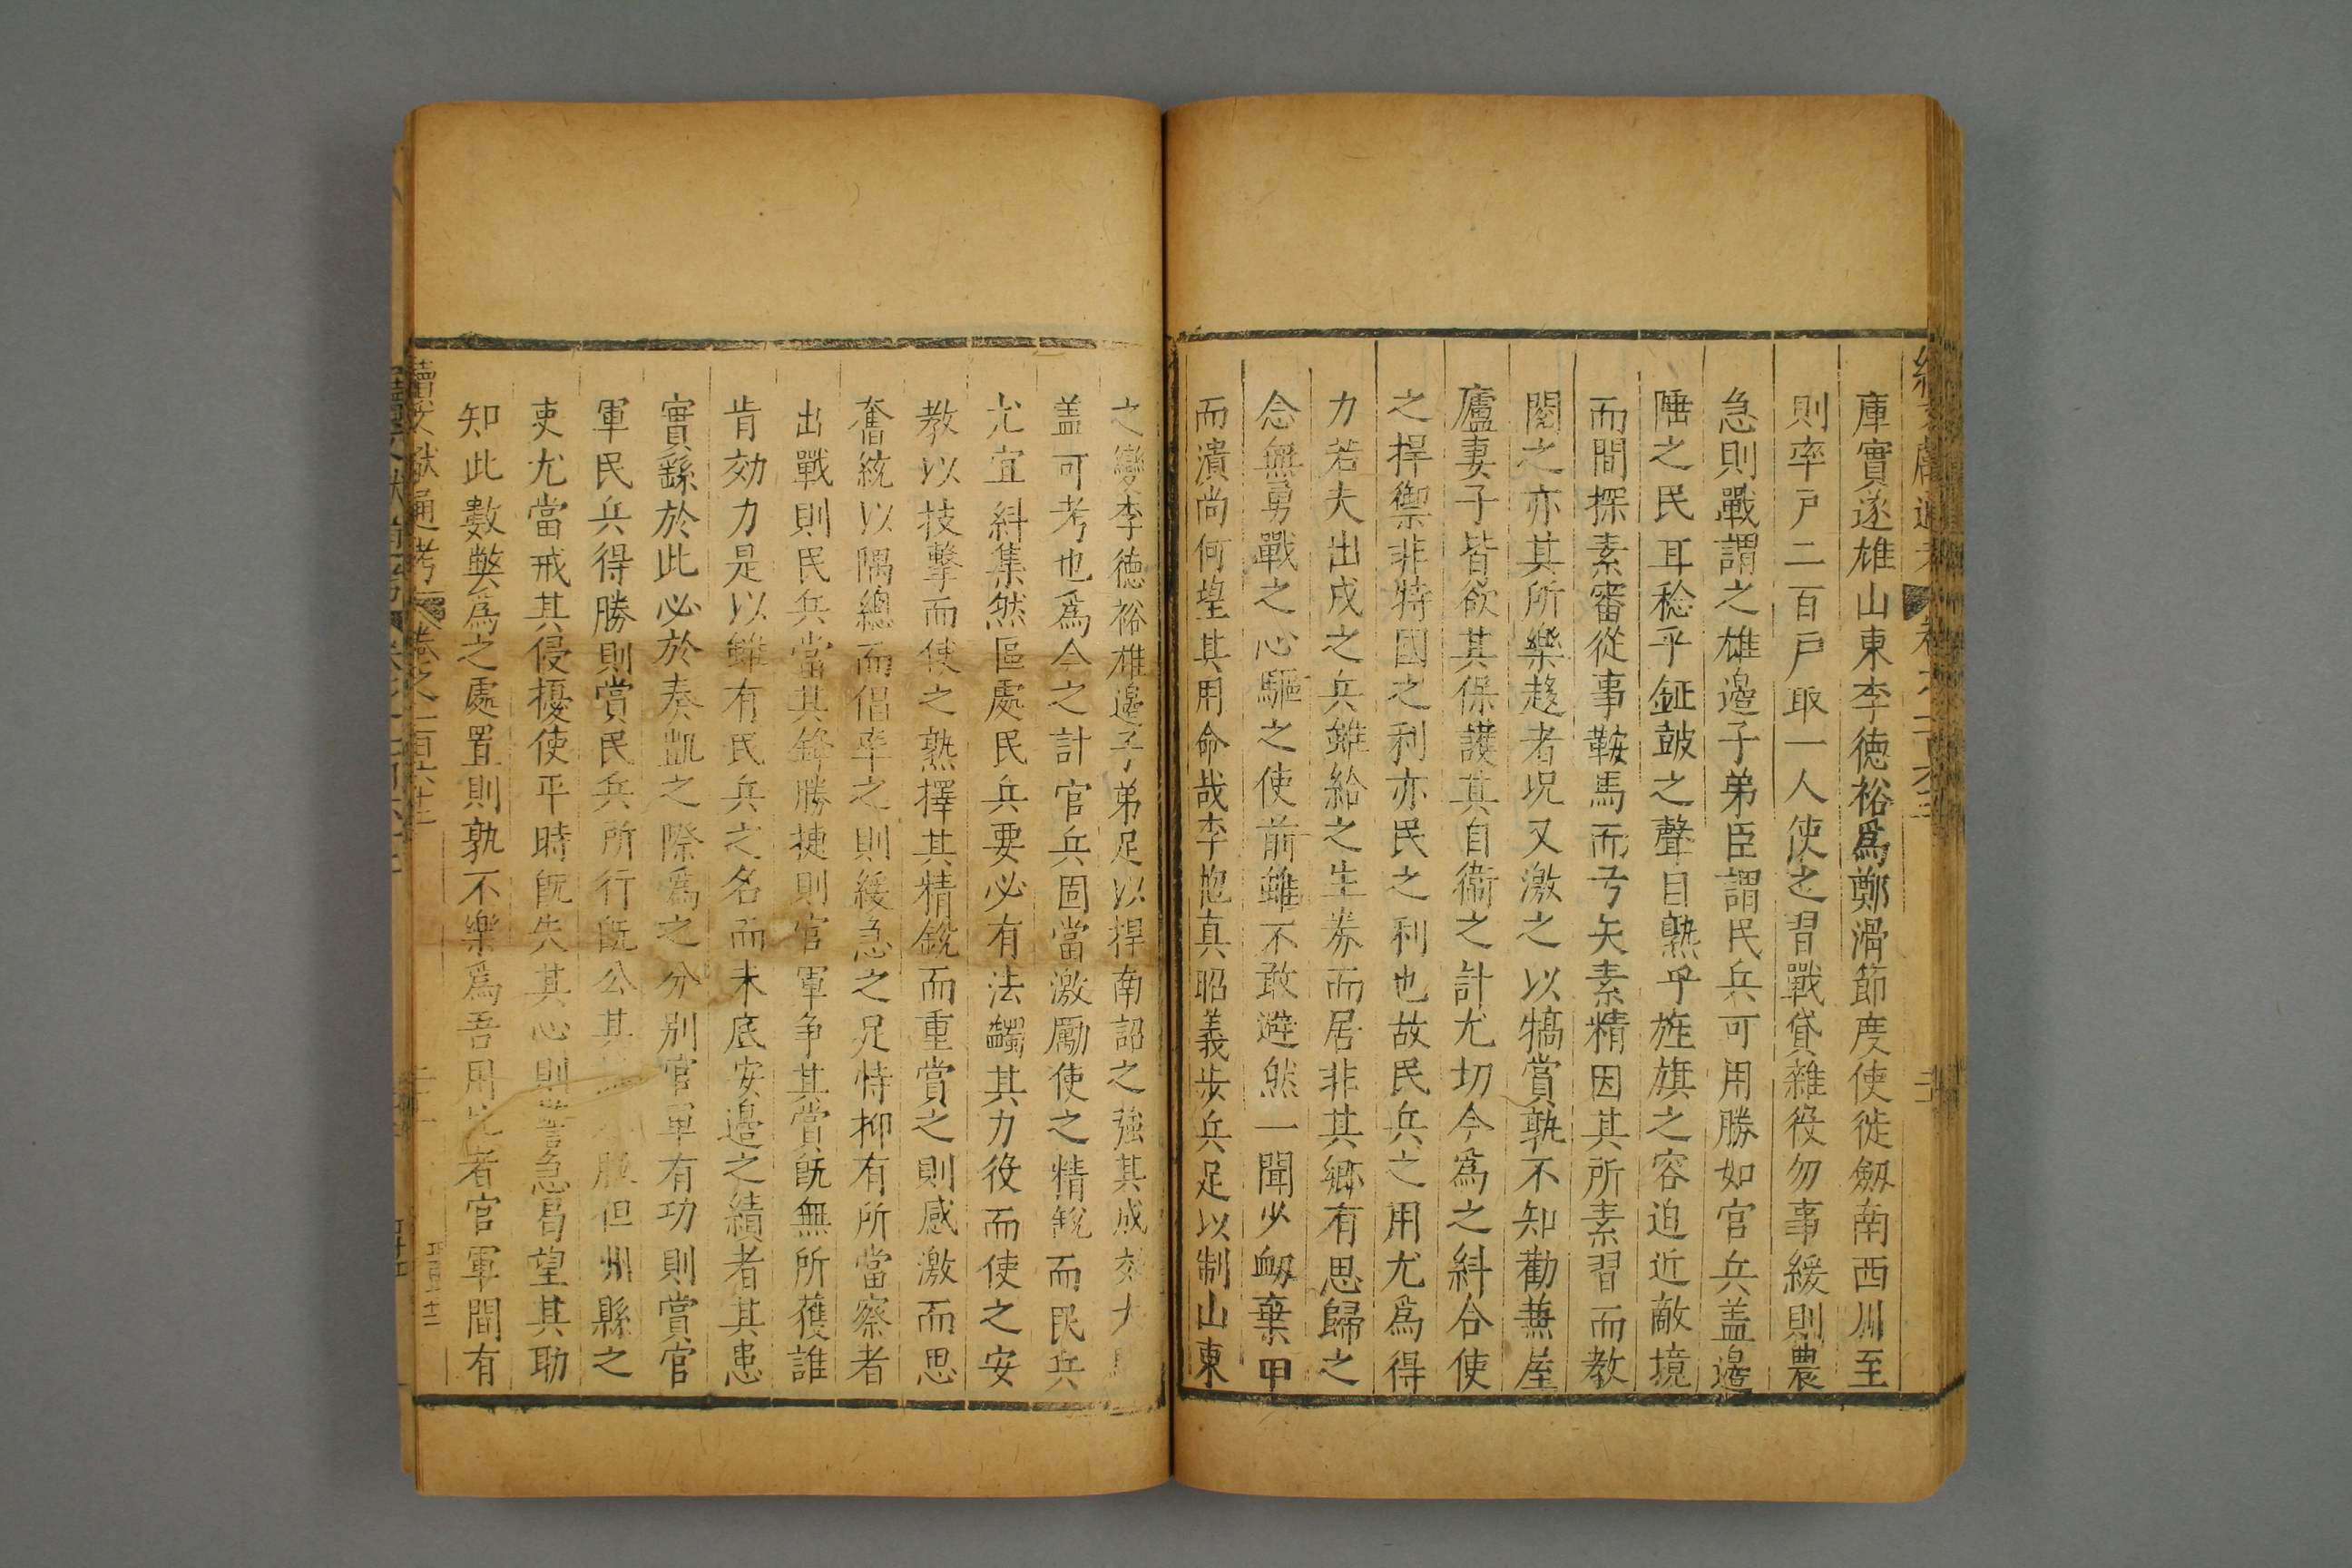 庫實遂雄山東李德裕爲鄭滑節度使徙劒南西川至
則率戶二百戶取一人使之習戰貸雜役勿事緩則農
急則戰謂之雄邉子弟臣謂民兵可用勝如官兵盖邉
陲之民耳稔乎鉦鼓之聲目熟乎旌旗之容迫近敵境
而間探素審從事鞍馬而弓矢素精因其所素習而教
閱之亦其所樂趍者况又激之以犒賞孰不知勸蕪屋
廬妻子皆欲其保護其自衞之計尤切今爲之糾合使
之捍禦非特國之利亦民之利也故民兵之用尤爲得
力若夫出戍之兵雖給之生券而居非其鄉有思歸之
念無勇戰之心驅之使前雖不敢避然一聞少衂棄甲
而潰尚何望其用命哉李抱真昭義步兵足以制山東
之變李德裕雄邉子弟足以捍南詔之強其成效大
盖可考也爲今之計官兵固當激勵使之精銳而民兵
尤宜糾集然區處民兵要必有法蠲其力役而使之安
教以技擊而使之熟擇其精銳而重賞之則感激而思
奮統以隅總而倡率之則緩急之足恃抑有所當察者
出戰則民兵當其鋒勝捷則官軍争其賞旣無所獲誰
肯効力是以雖有民兵之名而未底安邉之績者其患
實繇於此必於奏凱之際爲之分别官軍有功則賞官
軍民兵得勝則賞民兵所行旣公其 服但州縣之
吏尤當戒其侵擾使平時旣失其心則警急曷望其助
知此數弊爲之處置則孰不樂爲吾用比者官軍間有
續文獻通考 卷之一百六十二